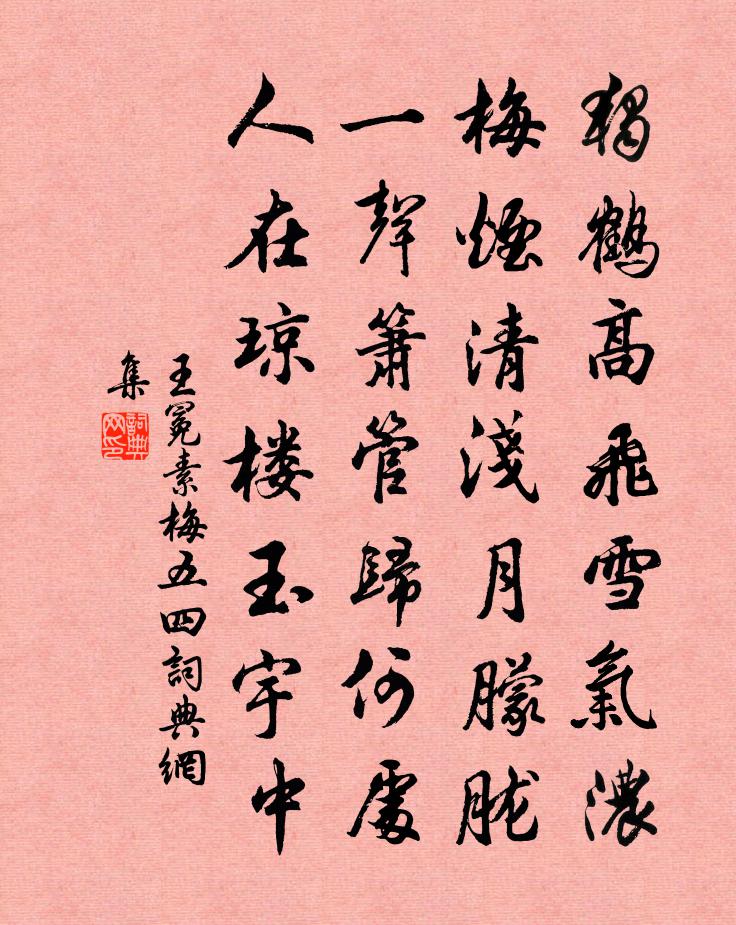 獨鶴高飛雪氣濃
梅煙清淺月朦朧
一聲簫管歸何處
人在琼楼玉宇中
王冕素梅五四詞典網
集
詞典网印